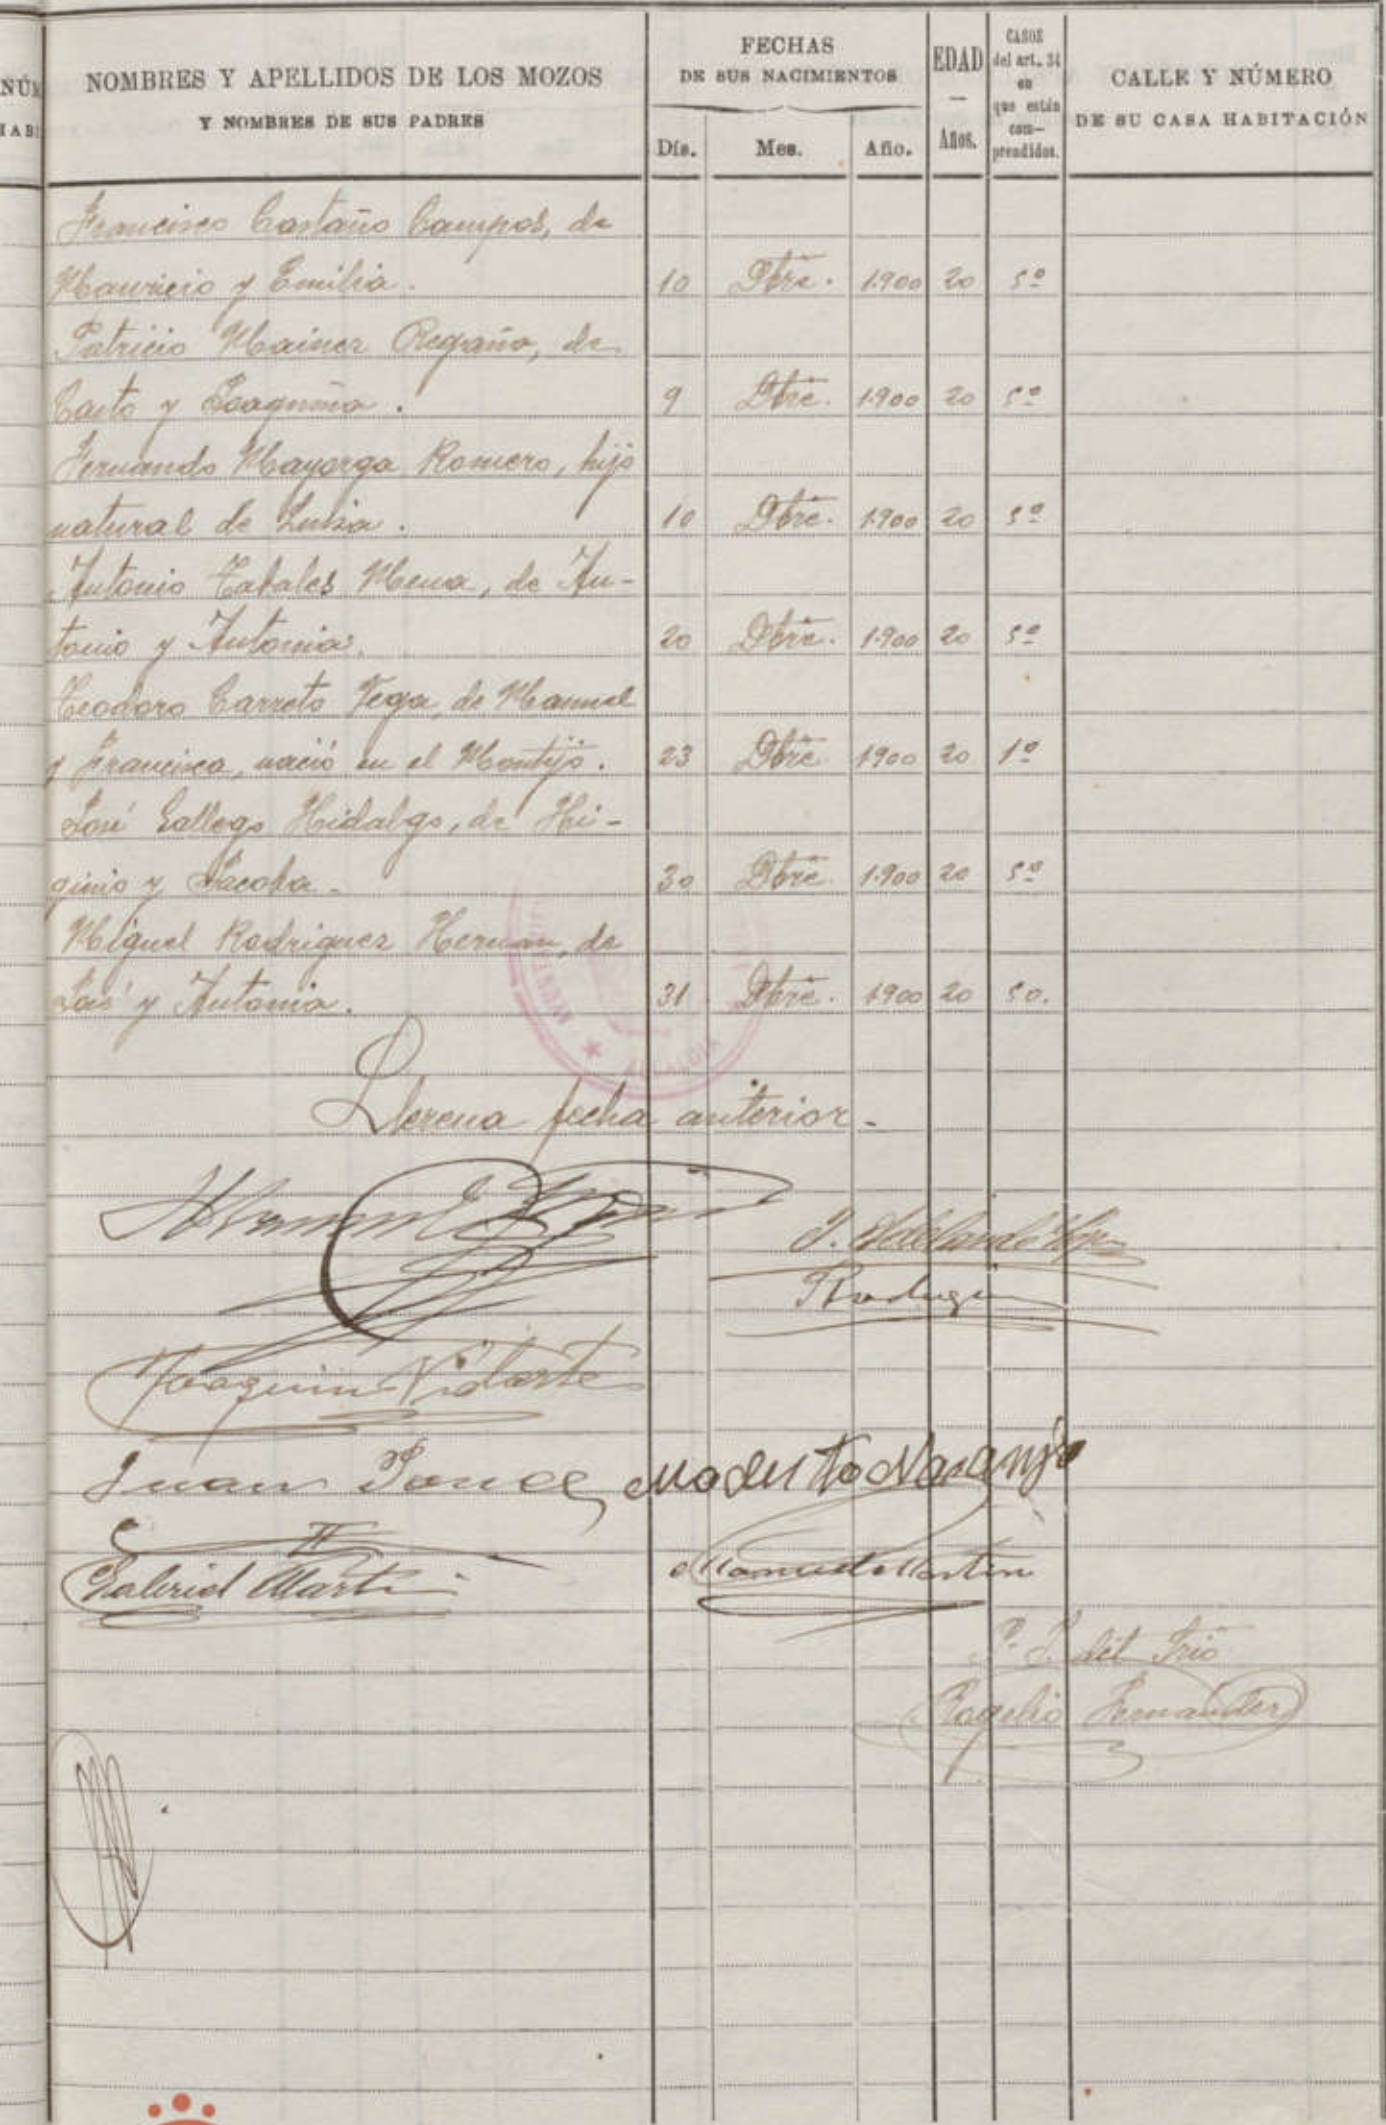 NÚM
HABI
NOMBRES Y APELLIDOS DE LOS MOZOS
Y NOMBRES DE SUS PADRES
FECHAS
DE SUS NACIMIENTOS
Día. Mes. Año.
EDAD
—
Años.
CASOS
del art. 34
en
que están
com-
prendidos.
CALLE Y NÚMERO
DE SU CASA HABITACIÓN
Francisco Castaño Campos, de
Mauricio y Emilia. 10 Dbre. 1.900 20 5º
Patricio Mainez Regaña, de
Casto y Joaquina. 9 Dbre. 1.900 20 5º
Fernando Mayorga Romero, hijo
natural de Luisa. 10 Dbre. 1.900 20 5º
Antonio Tabales Mena, de An-
tonio y Antonia. 20 Dbre. 1.900 20 5º
Teodoro Carreto Vega, de Manuel
y Francisca, nació en el Montijo. 23 Dbre. 1900 20 1º
José Gallego Hidalgo, de Hi-
ginio y Jacoba. 30 Dbre. 1.900 20 5º
Miguel Rodriguez Hernan, de
José y Antonia. 31 Dbre. 1900 20 5o.
Llerena fecha anterior.
Joaquin Vidarte
Juan Ponce Modesto Naranjo
Gabriel Martin Manuel Martin
P. S. del Srio
Rogelio Fernandez